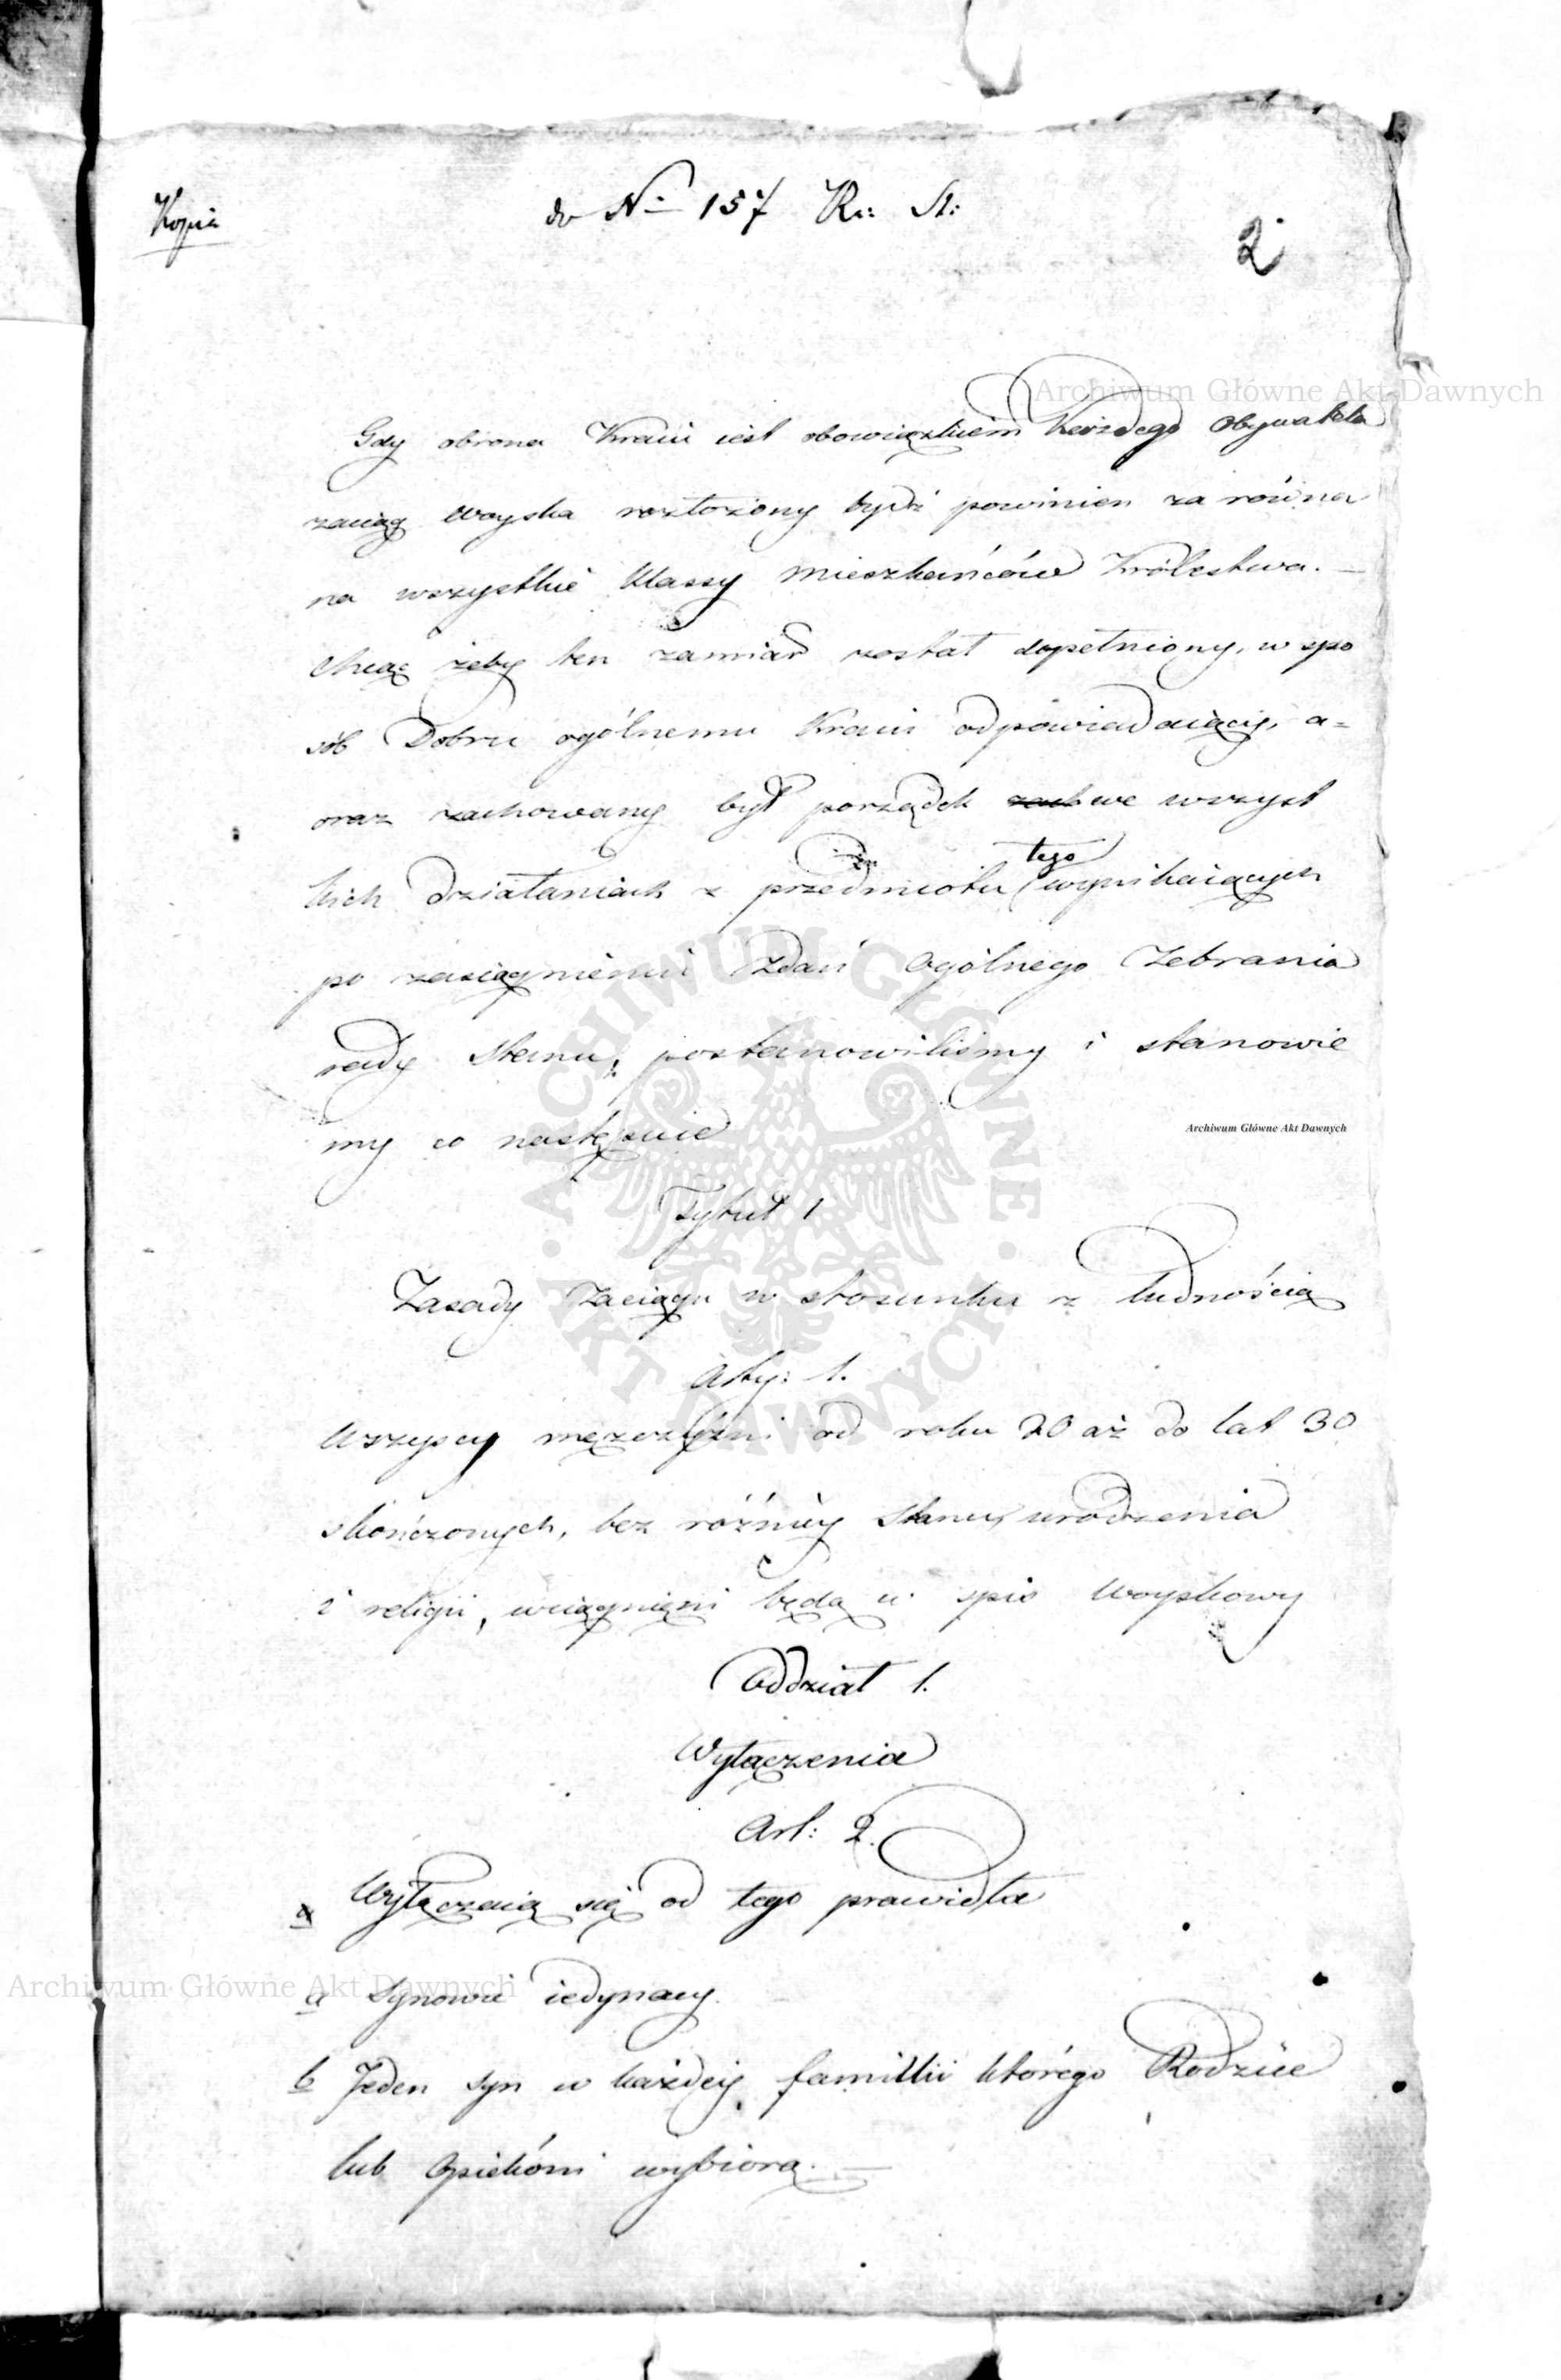 Kopia
do No 157 R: St:
2
Archiwum Główne Akt Dawnych
Gdy obrona Kraiu iest obowiązkiem każdego Obywatela
zaciąg woyska rozłożony bydź powinien za równa
na wszystkie klassy Mieszkańców Królestwa. —
Chcąc żeby ten zamiar został dopełniony, w spo
sób Dobru ogólnemu Kraiu odpowiadaiący, a=
oraz zachowany był porządek we wszyst
kich działaniach z przedmiotu tego wynikaiących
po zasiągnieniu Zdań Ogólnego Zebrania
rady Stanu, postanowiliśmy i stanowie
my co następuie
Archiwum Główne Akt Dawnych
Tytuł 1
Zasady Zaciągu w stosunku z ludnością
Arty: 1.
Wszyscy mężczyźni od roku 20 aż do lat 30
skończonych, bez różnicy Stanu, urodzenia
i religii, wciągnięni będą w spis Woyskowy
Oddział 1.
Wyłączenia
Art: 2.
Wyłączaią się od tego prawidła
a Synowie iedynacy.
b Jeden syn w każdey familii którego Rodzice
lub Opiekóni wybiorą. —
Archiwum Główne Akt Dawnych
ARCHIWUM GŁÓWNE AKT DAWNYCH